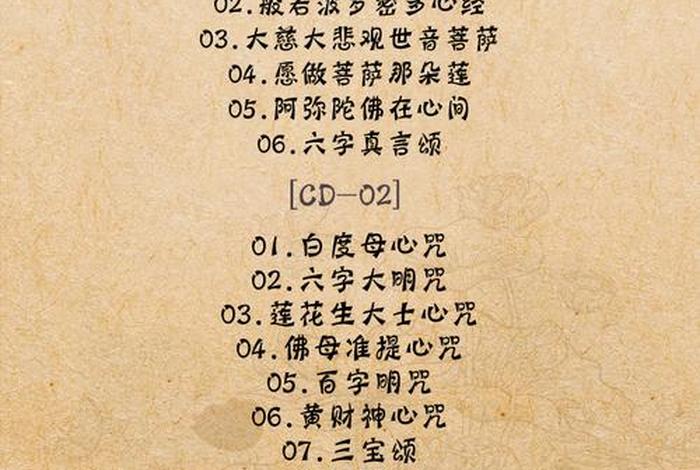 02.般若波罗密多心经
03.大慈大悲观世音菩萨
04.愿做菩萨那朵莲
05.阿弥陀佛在心间
06.六字真言颂
[CD-02]
01.白度母心咒
02.六字大明咒
03.莲花生大士心咒
04.佛母准提心咒
05.百字明咒
06.黄财神心咒
07.三宝颂